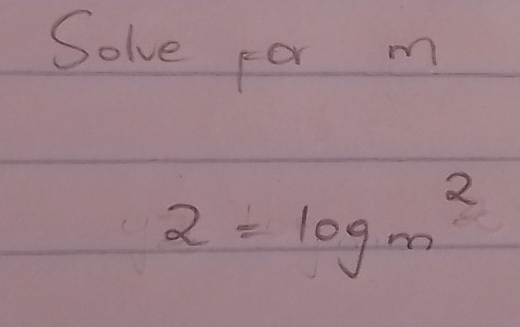 Solve for m
2 = log m²